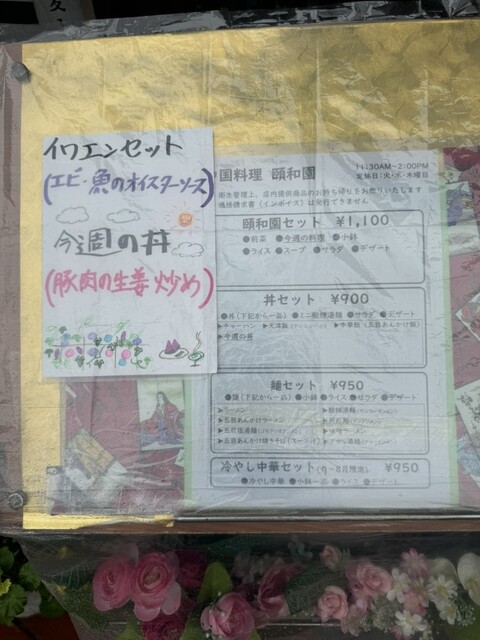 イワエンセット
(エビ・魚のオイスターソース)
今週の丼
(豚肉の生姜炒め)
国料理 頤和園
11:30AM~2:00PM
定休日:火・水・木曜日
衛生管理上、店内提供商品のお持ち帰りをお断りいたします
適格請求書(インボイス)は発行できません
頤和園セット ¥1,100
●前菜 ●今週の料理 ●小鉢
●ライス ●スープ ●サラダ ●デザート
丼セット ¥900
●丼(下記から一品) ●ミニ ●サラダ ●デザート
▶チャーハン ▶天津飯 ▶中華飯(五目あんかけ飯)
▶今週の丼
麺セット ¥950
●麺(下記から一品) ●小鉢 ●ライス ●サラダ ●デザート
▶ラーメン
▶五目あんかけラーメン
▶五目塩湯麺
▶五目あんかけ焼きそば
冷やし中華セット(6~8月限定) ¥950
●冷やし中華 ●小鉢一品 ●ライス ●デザート